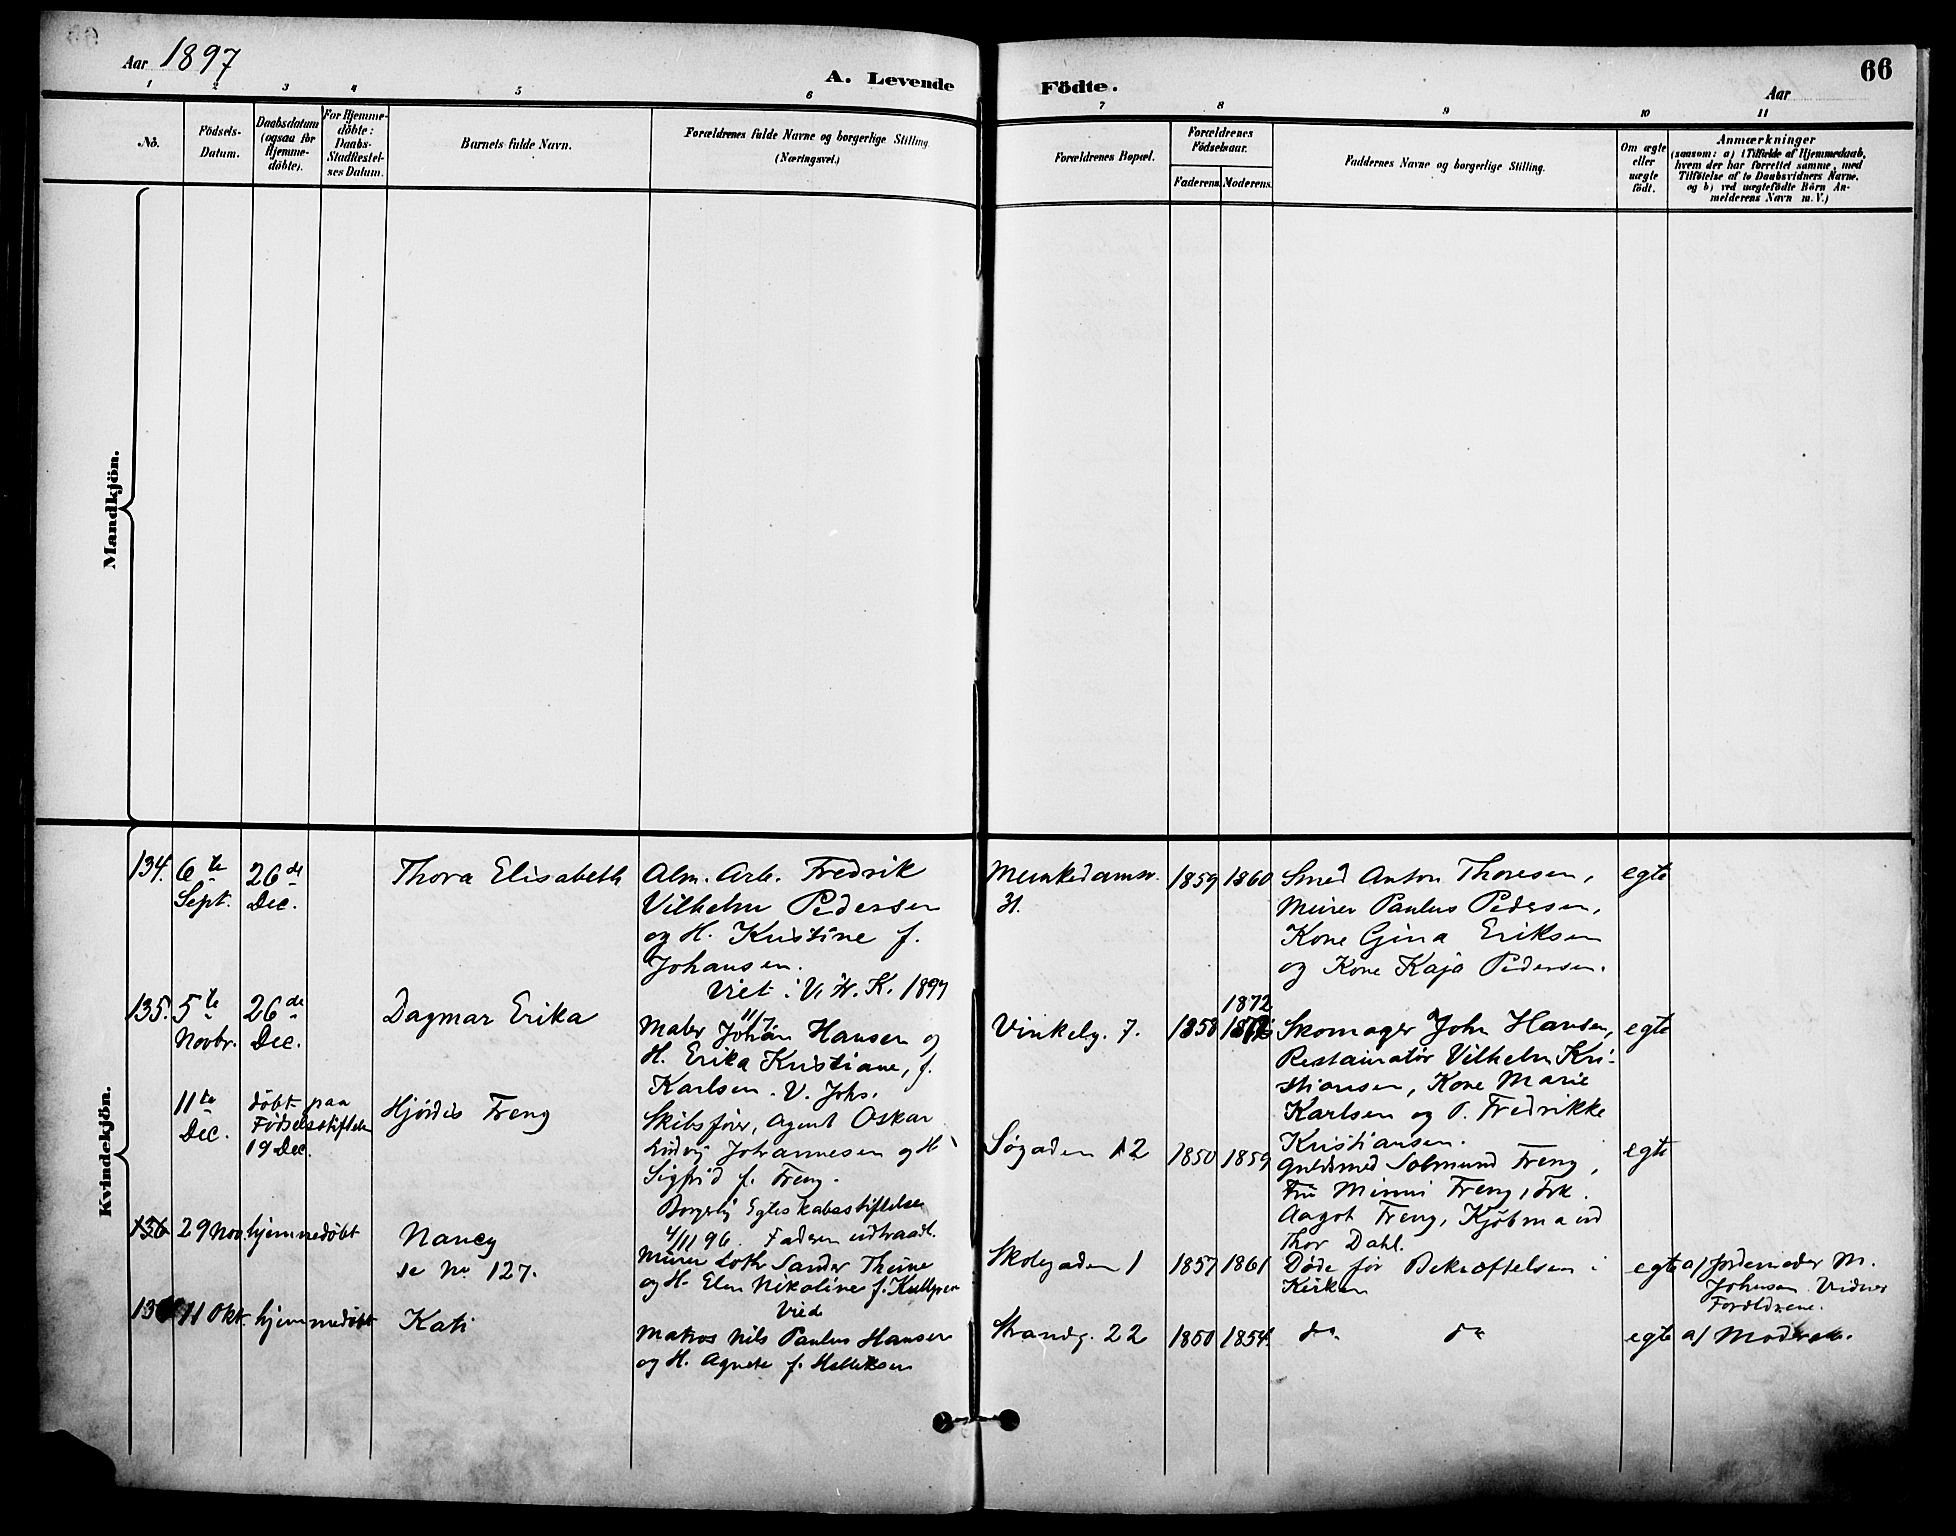 Aar 1897
A. Levende Födte.
66
Aar
1 2 3 4 5 6 7 8 9 10 11
No.
Födsels-
Datum.
Daabsdatum
(ogsaa for
Hjemme-
döbte).
For Hjemme-
döbte:
Daabs-
Stadfæstel-
ses Datum.
Barnets fulde Navn.
Forældrenes fulde Navne og borgerlige Stilling
(Næringsvei.)
Forældrenes Bopæl.
Forældrenes
Födselsaar.
Faderens.
Moderens.
Faddernes Navne og borgerlige Stilling.
Om ægte
eller
uægte
födt.
Anmærkninger
(saasom: a) i Tilfælde af Hjemmedaab,
hvem der har forrettet samme, med
Tilföielse af to Daabsvidners Navne.
og b) ved uægtefödte Börn An-
melderens Navn m. V.)
Mandkjön.
Kvindekjön.
134.
6te
Sept.
26de
Dec.
Thora Elisabeth
Alm. Arb. Fredrik
Vilhelm Pedersen
og H. Kristine f.
Johansen.
Viet i V. Fr. K. 1897
11/7
Munkedamsv.
31.
1859
1860
Smed Anton Thoresen,
Murer Paulus Pedersen,
Kone Gina Eriksen
og Kone Kaja Pedersen.
egte
135.
5te
Novbr.
26de
Dec.
Dagmar Erika
Maler Johan Hansen og
H. Erika Kristiane, f.
Karlsen. V. Johs.
Vinkelg. 7.
1858
1872
Skomager John Hansen,
Restauratør Vilhelm Kri-
stiansen, Kone Marie
Karlsen og P. Fredrikke
Kristiansen.
egte
11te
Dec.
døbt paa
Fødselsstiftelsen
19 Dec.
Hjørdis Freng
Skibsfører, Agent Oskar
Ludvig Johannesen og H
Sigfrid f. Freng.
Borgerlig Egteskabsstiftelse
4/11 96. Faderen udtraadt.
Søgaden 12
1850
1859
Guldsmed Solmund Freng,
Fru Minni Freng, Frk.
Aagot Freng, Kjøbmand
Thor Dahl.
egte
136
29 Nov
hjemmedøbt
Nancy
se No 127.
Murer Loth Sander Thune
og H. Elen Nikoline f.
Vied
Skolegaden 1
1857
1861
Døde før Bekræftelsen i
Kirken
egte
a/ Jordemoder M.
Johnsen. Vidner
Forældrene.
11 Okt.
hjemmedøbt
Kati
Matros Nils Paulus Hansen
og H. Agnete f.
Strandg. 22
1850
1854
do do
egte
a/ Moderen.